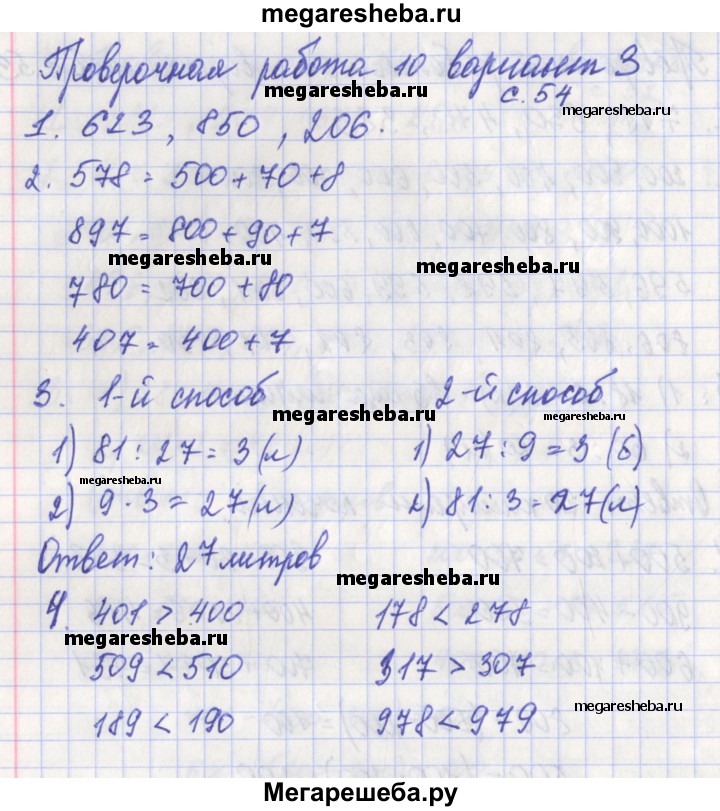 megaresheba.ru
Проверочная работа 10 вариант 3
megaresheba.ru
с. 54
megaresheba.ru
1. 623, 850, 206.
2. 578 = 500 + 70 + 8
897 = 800 + 90 + 7
megaresheba.ru
megaresheba.ru
780 = 700 + 80
407 = 400 + 7
3. 1-й способ 2-й способ
megaresheba.ru
megaresheba.ru
1) 81 : 27 = 3 (л) 1) 27 : 9 = 3 (б)
megaresheba.ru
2) 9 · 3 = 27 (л) 2) 81 : 3 = 27 (л)
megaresheba.ru
Ответ: 27 литров
megaresheba.ru
4. 401 > 400 178 < 278
509 < 510 317 > 307
189 < 190 978 < 979
megaresheba.ru
Мегарешеба.ру